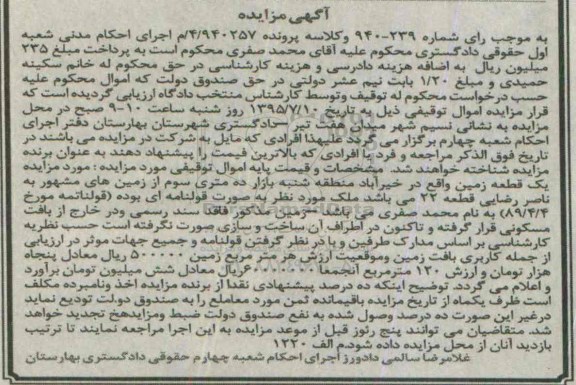 آگهی مزایده
به موجب رای شماره ۲۳۹-۹۴۰ وکلاسه پرونده ۴/۹۴۰۲۵۷/م اجرای احکام مدنی شعبه
اول حقوقی دادگستری محکوم علیه آقای محمد صفری محکوم است به پرداخت مبلغ ۲۳۵
میلیون ریال به اضافه هزینه دادرسی و هزینه کارشناسی در حق محکوم له خانم سکینه
حمیدی و مبلغ ۱/۲۰ بابت نیم عشر دولتی در حق صندوق دولت که اموال محکوم علیه
حسب درخواست محکوم له توقیف وتوسط کارشناس منتخب دادگاه ارزیابی گردیده است که
قرار مزایده اموال توقیفی ذیل به تاریخ ۱۳۹۵/۷/۱۰ روز شنبه ساعت ۱۰-۹ صبح در محل
مزایده به نشانی نسیم شهر میدان هفت تیر دادگستری شهرستان بهارستان دفتر اجرای
احکام شعبه چهارم برگزار می گردد علیهذا افرادی که مایل به شرکت در مزایده می باشند در
تاریخ فوق الذکر مراجعه و فرد یا افرادی که بالاترین قیمت را پیشنهاد دهند به عنوان برنده
مزایده شناخته خواهند شد. مشخصات و قیمت پایه اموال توقیفی مورد مزایده : مورد مزایده
یک قطعه زمین واقع در خیرآباد منطقه شنبه بازار ده متری سوم از زمین های مشهور به
ناصر رضایی قطعه ۲۲ می باشد ملک مورد نظر به صورت قولنامه ای بوده (قولنامه مورخ
۸۹/۴/۴) به نام محمد صفری می باشد - زمین مذکور فاقد سند رسمی ودر خارج از بافت
مسکونی قرار گرفته و تاکنون در اطراف آن ساخت و سازی صورت نگرفته است حسب نظریه
کارشناسی بر اساس مدارک طرفین و با در نظر گرفتن قولنامه و جمیع جهات موثر در ارزیابی
از جمله کاربری بافت زمین وموقعیت ارزش هر متر مربع زمین ۵۰۰۰۰۰ ریال معادل پنجاه
هزار تومان و ارزش ۱۲۰ مترمربع انجمعا ریال معادل شش میلیون تومان برآورد
و اعلام می گردد. توضیح اینکه ده درصد پیشنهادی نقدا از برنده مزایده اخذ ونامبرده مکلف
است ظرف یکماه از تاریخ مزایده باقیمانده ثمن مورد معاملع را به صندوق دولت تودیع نماید
درغیر این صورت ده درصد وصول شده به نفع صندوق دولت ضبط ومزایدهخ تجدید خواهد
شد. متقاضیان می توانند پنج رئوز قبل از موعد مزایده به این اجرا مراجعه نمایند تا ترتیب
بازدید آنان از محل مزایده داده شودم الف ۱۲۲۰
غلامرضا سالمی دادورز اجرای احکام شعبه چهارم حقوقی دادگستری بهارستان